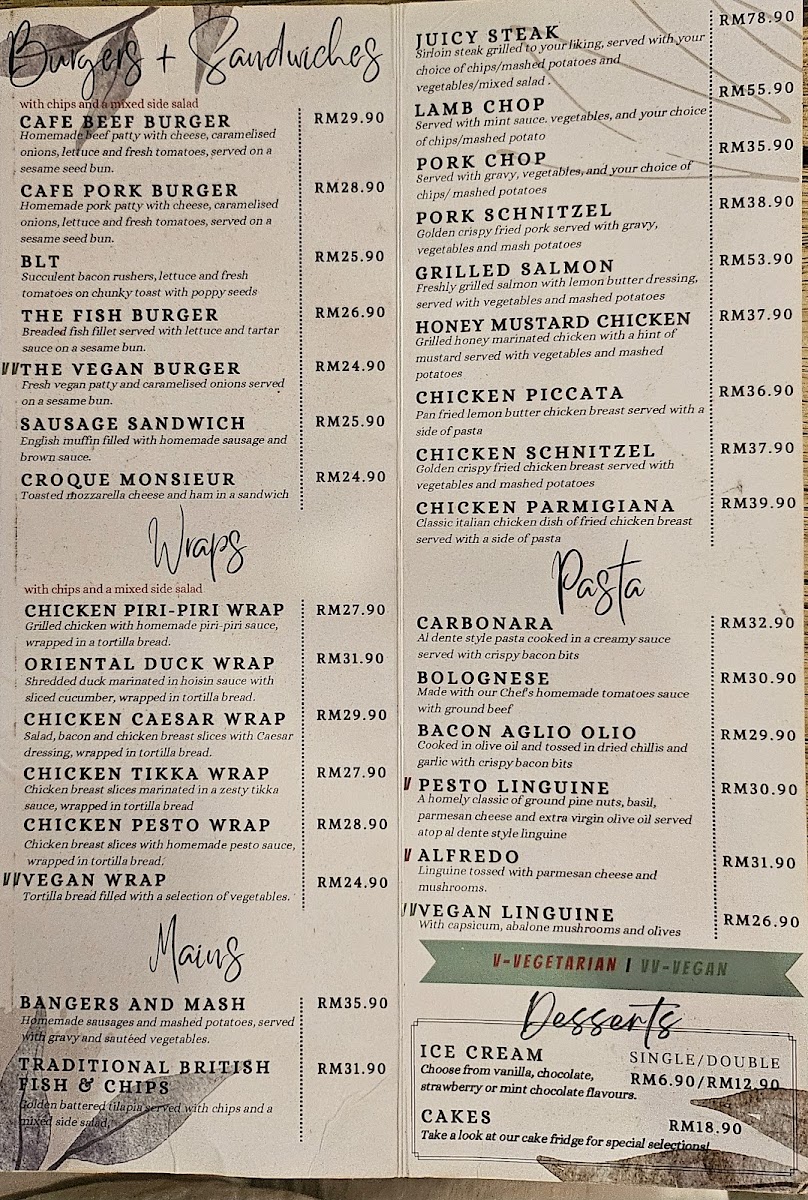 Burgers + Sandwiches
with chips and a mixed side salad
CAFE BEEF BURGER RM29.90
Homemade beef patty with cheese, caramelised
onions, lettuce and fresh tomatoes, served on a
sesame seed bun.
CAFE PORK BURGER RM28.90
Homemade pork patty with cheese, caramelised
onions, lettuce and fresh tomatoes, served on a
sesame seed bun.
BLT RM25.90
Succulent bacon rushers, lettuce and fresh
tomatoes on chunky toast with poppy seeds
THE FISH BURGER RM26.90
Breaded fish fillet served with lettuce and tartar
sauce on a sesame bun.
VV THE VEGAN BURGER RM24.90
Fresh vegan patty and caramelised onions served
on a sesame bun.
SAUSAGE SANDWICH RM25.90
English muffin filled with homemade sausage and
brown sauce.
CROQUE MONSIEUR RM24.90
Toasted mozzarella cheese and ham in a sandwich
Wraps
with chips and a mixed side salad
CHICKEN PIRI-PIRI WRAP RM27.90
Grilled chicken with homemade piri-piri sauce,
wrapped in a tortilla bread.
ORIENTAL DUCK WRAP RM31.90
Shredded duck marinated in hoisin sauce with
sliced cucumber, wrapped in tortilla bread.
CHICKEN CAESAR WRAP RM29.90
Salad, bacon and chicken breast slices with Caesar
dressing, wrapped in tortilla bread.
CHICKEN TIKKA WRAP RM27.90
Chicken breast slices marinated in a zesty tikka
sauce, wrapped in tortilla bread
CHICKEN PESTO WRAP RM28.90
Chicken breast slices with homemade pesto sauce,
wrapped in tortilla bread.
VV VEGAN WRAP RM24.90
Tortilla bread filled with a selection of vegetables.
Mains
BANGERS AND MASH RM35.90
Homemade sausages and mashed potatoes, served
with gravy and sautéed vegetables.
TRADITIONAL BRITISH RM31.90
FISH & CHIPS
Golden battered tilapia served with chips and a
mixed side salad.
JUICY STEAK RM78.90
Sirloin steak grilled to your liking, served with your
choice of chips/mashed potatoes and
vegetables/mixed salad .
LAMB CHOP RM55.90
Served with mint sauce. vegetables, and your choice
of chips/mashed potato
PORK CHOP RM35.90
Served with gravy, vegetables, and your choice of
chips/ mashed potatoes
PORK SCHNITZEL RM38.90
Golden crispy fried pork served with gravy,
vegetables and mash potatoes
GRILLED SALMON RM53.90
Freshly grilled salmon with lemon butter dressing,
served with vegetables and mashed potatoes
HONEY MUSTARD CHICKEN RM37.90
Grilled honey marinated chicken with a hint of
mustard served with vegetables and mashed
potatoes
CHICKEN PICCATA RM36.90
Pan fried lemon butter chicken breast served with a
side of pasta
CHICKEN SCHNITZEL RM37.90
Golden crispy fried chicken breast served with
vegetables and mashed potatoes
CHICKEN PARMIGIANA RM39.90
Classic italian chicken dish of fried chicken breast
served with a side of pasta
Pasta
CARBONARA RM32.90
Al dente style pasta cooked in a creamy sauce
served with crispy bacon bits
BOLOGNESE RM30.90
Made with our Chef's homemade tomatoes sauce
with ground beef
BACON AGLIO OLIO RM29.90
Cooked in olive oil and tossed in dried chillis and
garlic with crispy bacon bits
V PESTO LINGUINE RM30.90
A homely classic of ground pine nuts, basil,
parmesan cheese and extra virgin olive oil served
atop al dente style linguine
V ALFREDO RM31.90
Linguine tossed with parmesan cheese and
mushrooms.
VV VEGAN LINGUINE RM26.90
With capsicum, abalone mushrooms and olives
V-VEGETARIAN | VV-VEGAN
Desserts
ICE CREAM SINGLE/DOUBLE
Choose from vanilla, chocolate, RM6.90/RM12.90
strawberry or mint chocolate flavours.
CAKES RM18.90
Take a look at our cake fridge for special selections!